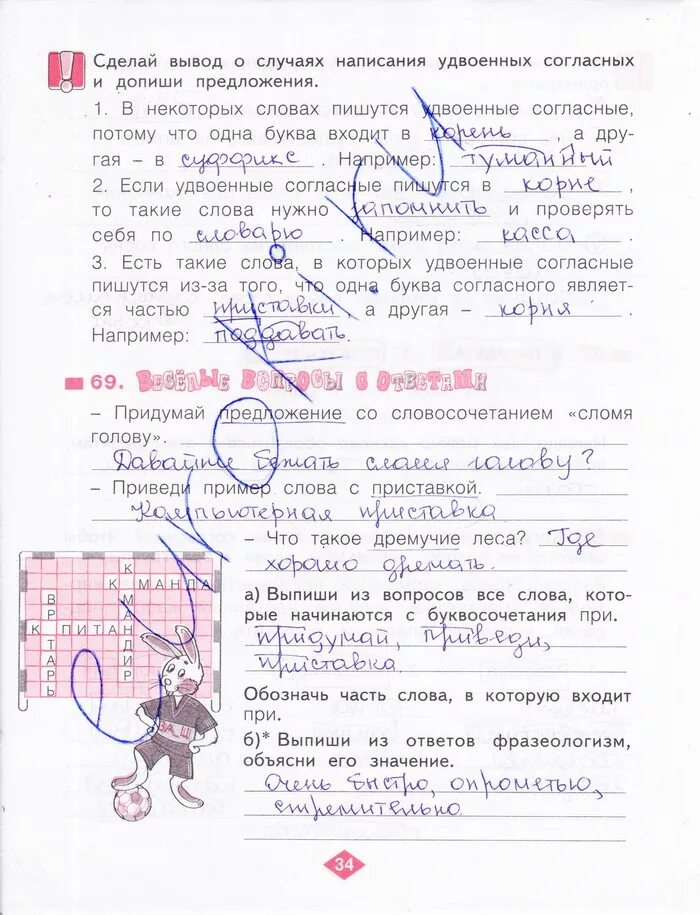 Сделай вывод о случаях написания удвоенных согласных
и допиши предложения.
1. В некоторых словах пишутся удвоенные согласные,
потому что одна буква входит в корень, а дру-
гая – в суффикс. Например: туманный
2. Если удвоенные согласные пишутся в корне,
то такие слова нужно запомнить и проверять
себя по словарю. Например: касса.
3. Есть такие слова, в которых удвоенные согласные
пишутся из-за того, что одна буква согласного являет-
ся частью приставки, а другая – корня.
Например: поддавать.
69. ВЕСЁЛЫЕ ВОПРОСЫ С ОТВЕТАМИ
– Придумай предложение со словосочетанием «сломя
голову».
Давайте бежать сломя голову?
– Приведи пример слова с приставкой.
Компьютерная приставка
– Что такое дремучие леса? Где
хорошо дремать.
а) Выпиши из вопросов все слова, кото-
рые начинаются с буквосочетания при.
придумай, приведи,
приставка.
Обозначь часть слова, в которую входит
при.
б)* Выпиши из ответов фразеологизм,
объясни его значение.
Очень быстро, опрометью,
стремительно.
К МАНДА
К МАНДИР
ВР ТАРЬ
К ПИТАН
ЗАЩ
34